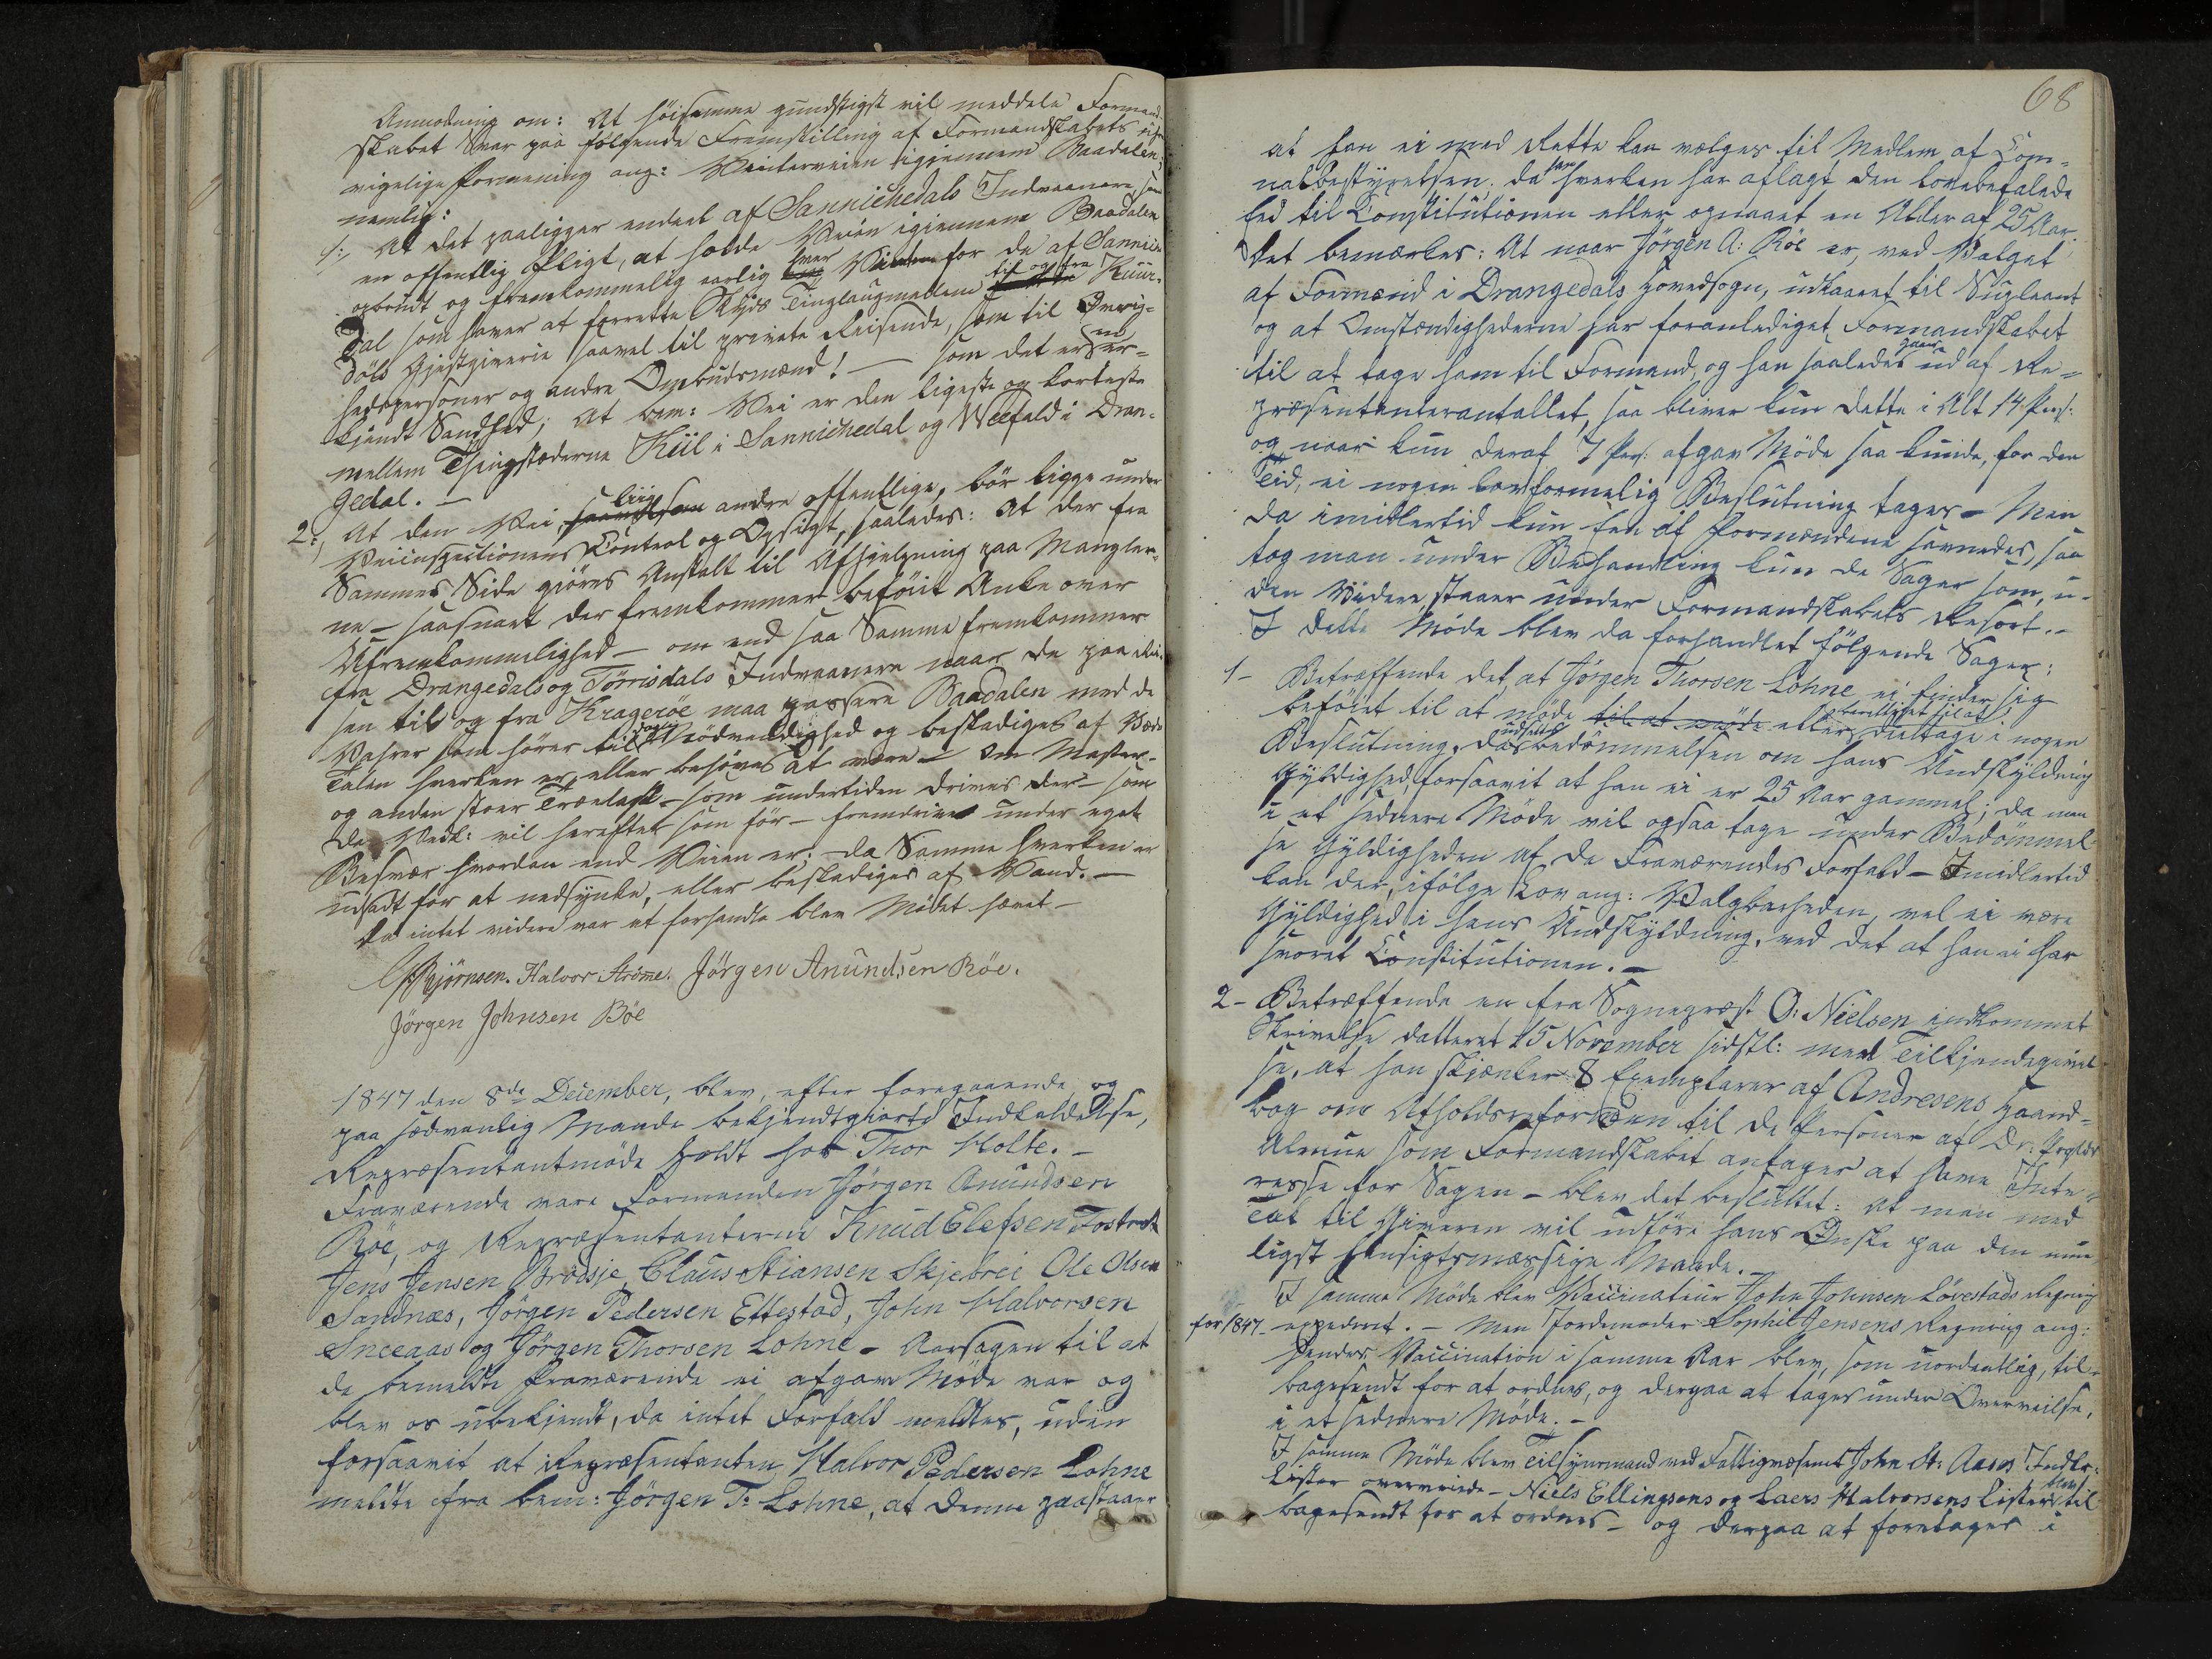 Anmodning om: At høisamme gundstigst vil meddele Formand-
skabet Svar paa følgende Fremstilling af Formandskabets ufor-
vigelige Formening ang: Vinterveien igjennem Baadalen,
nemlig:
1:, At det paaligger endeel af Sannichedals Indvaanere som
en offentlig Pligt, at holde Veien igjennem Baadalen
opbrudt og fremkommelig aarlig hver Vinter for de af Sanniche-
dal som haver at forrette Skyds Tinglaugmellem til og fra Kuur-
döls Gjestgiverie saavel til private Reisende, som til Øvrig-
hedspersoner og andre Ombudsmænd! — som det er en er-
kjendt Sandhed, at bem: Vei er den ligeste og korteste
mellem Thingstæderne Kiil i Sannichedal og Veefald i Dran-
gedal. —
2:, At den Vei saavel som liig andre offentlige, bör ligge under
Veiinspectionens Control og Opsigt, saaledes: at der fra
Sammes Side giöres Anstalt til Afhjelpning paa Mangler-
ne — saasnart der fremkommer beföiet Anke over
Ufremkommelighed — om end saa Samme fremkommer
fra Drangedals og Törrisdals Indvaanere naar de paa Rei-
sen til og fra Kragerøe maa passere Baadalen med de
Vahrer som hörer til Nödvendighed og beskadiges af Væde
Talen hverken er eller behöves at være — om Master-
og anden stoer Trælast — som undertiden drives der — som
de Vedk: vil herefter som för — fremdrives under eget
Besvær hvordan end Veien er; da Samme hverken er
udsadt for at nedsynke, eller beskadiges af Vand. —
Da intet videre var at forhandle blev Mödet hævet —
Bjørnsen. Halvor Strõme. Jörgen Anundsen Röe.
Jörgen Johnsen Böe
1847 den 8de December, blev, efter foregaaende og
paa sædvanlig Maade bekjendtgiorte Indkaldelse,
Repræsentantmöde holdt hos Thor Holte. —
Fraværende vare Formanden Jörgen Anundsen
Röe, og Repræsentanterne Knud Elefsen Tostvet
Jens Jensen Brödsje, Claus Stiansen Skjebrei Ole Olsen
Sandnæs, Jörgen Pedersen Ettestad, John Halvorsen
Sneeaas og Jörgen Thorsen Lohne — Aarsagen til at
de bemeldte Fraværende ei afgav Möde var og
blev os ubekjendt, da intet Forfald meldtes, uden
forsaavit at Repræsentanten Halvor Pedersen Lohne
meldte fra bem: Jörgen T: Lohne, at denne paastaaer
68
at han ei med Rette kan vælges til Medlem af Com-
nalbestyrelsen. da han hverken har aflagt den lovbefalede
Eed til Constitutionen eller opnaaet en Alder af 25 Aar.
Det bemærkes: At naar Jörgen A: Röe er, ved Valget
af Formænd i Drangedals Hovedsogn, udkaaret til Supleant
og at Omstændighederne har foranlediget Formandskabet
til at tage ham til Formand, og han saaledes gaaer ud af Re-
præsentanterantallet, saa bliver kun dette i Alt 14 Pers:
og naar kun deraf 7 Pers: afgav Möde saa kunde, for den
Tid, ei nogen lovformelig Beslutning tages — Men
da imidlertid kun Een af Formændene savnedes, saa
tog man under Behandling kun de Sager som, u-
den Videre staaer under Formandskabets Resort. —
I dette Möde blev da forhandlet fölgende Sager:
1 — Betræffende det, at Jörgen Thorsen Lohne ei finder sig
beföiet til at möde til at möde eller berettiget til at deeltage i nogen
Beslutning, da udsættes bedömmelsen om hans Undskyldning
Gyldighed, forsaavit at han ei er 25 Aar gammel; da man
i et sednere Möde vil ogsaa tage under Bedömmel-
se Gyldigheden af de Fraværendes Forfald — Imidlertid
kan der, ifölge Lov ang: Valgbarheden, vel ei være
Gyldighed i hans Undskyldning, ved det at han ei har
svoret Constitutionen. —
2 — Betræffende en fra Sognepræst O: Nielsen indkommet
Skrivelse datteret 15 November sidstl: med Tilkjendegivel-
se, at han skjænker 8 Exemplarer af Andresens Haand-
bog om Afholdsreformen til de Personer af Dr: Prgldts
Almue som Formandskabet antager at have Inte-
resse for Sagen — blev det besluttet: at man med
Tak til Giveren vil udföre hans Ønske paa den mue-
ligst hensigtsmæssige Maade. —
I samme Möde blev Vaccinateur John Johnsen Lövestads Regning
for 1847 — expederet. — Men Jordemoder Sophie Jensens Regning ang:
hendes Vaccination i samme Aar blev, som uordentlig, til-
bagesendt for at ordnes, og derpaa at tages under Overveielse,
i et sednere Möde. —
I samme Möde blev Tilsynsmand ved Fattigvæsenet John St: Aases Indlæ-
Lister overveiede — Niels Ellingsens og Laers Halvorsens Lister blev til
bagesendt for at ordnes — og derpaa at foretages i